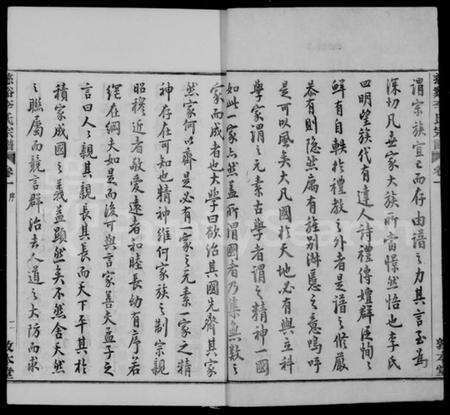 謂宗族宜而存由譜之力其言至為
深切凡世家大族所當憬然悟也李氏
四明望族代有達人詩禮傳嬗群臣恂恂
鮮有自軼於禮教之外者是譜之修嚴
恭有則隱然寓有旌別淑慝之意嗚呼
是可以風矣大凡國於天地必有與立科
學家謂之元素古學者謂之精神一國
如此一家亦然蓋所謂國者乃集無數之
家而成者也大學曰欲治其國先齊其家
然家何以齊是必有一家之元素一家之精
神存在可知也精神維何家族之制宗親
昭穆近者敬愛遠者和睦長幼有序若
網在綱夫如是而後可與言家善夫孟子之
言曰人人親其親長其長而天下平其於
積家成國之義益顯然矣不然舍天然
之聯屬而競言群治去人道之大防而求
慈谿李氏宗譜
卷一 序
二
敦本堂